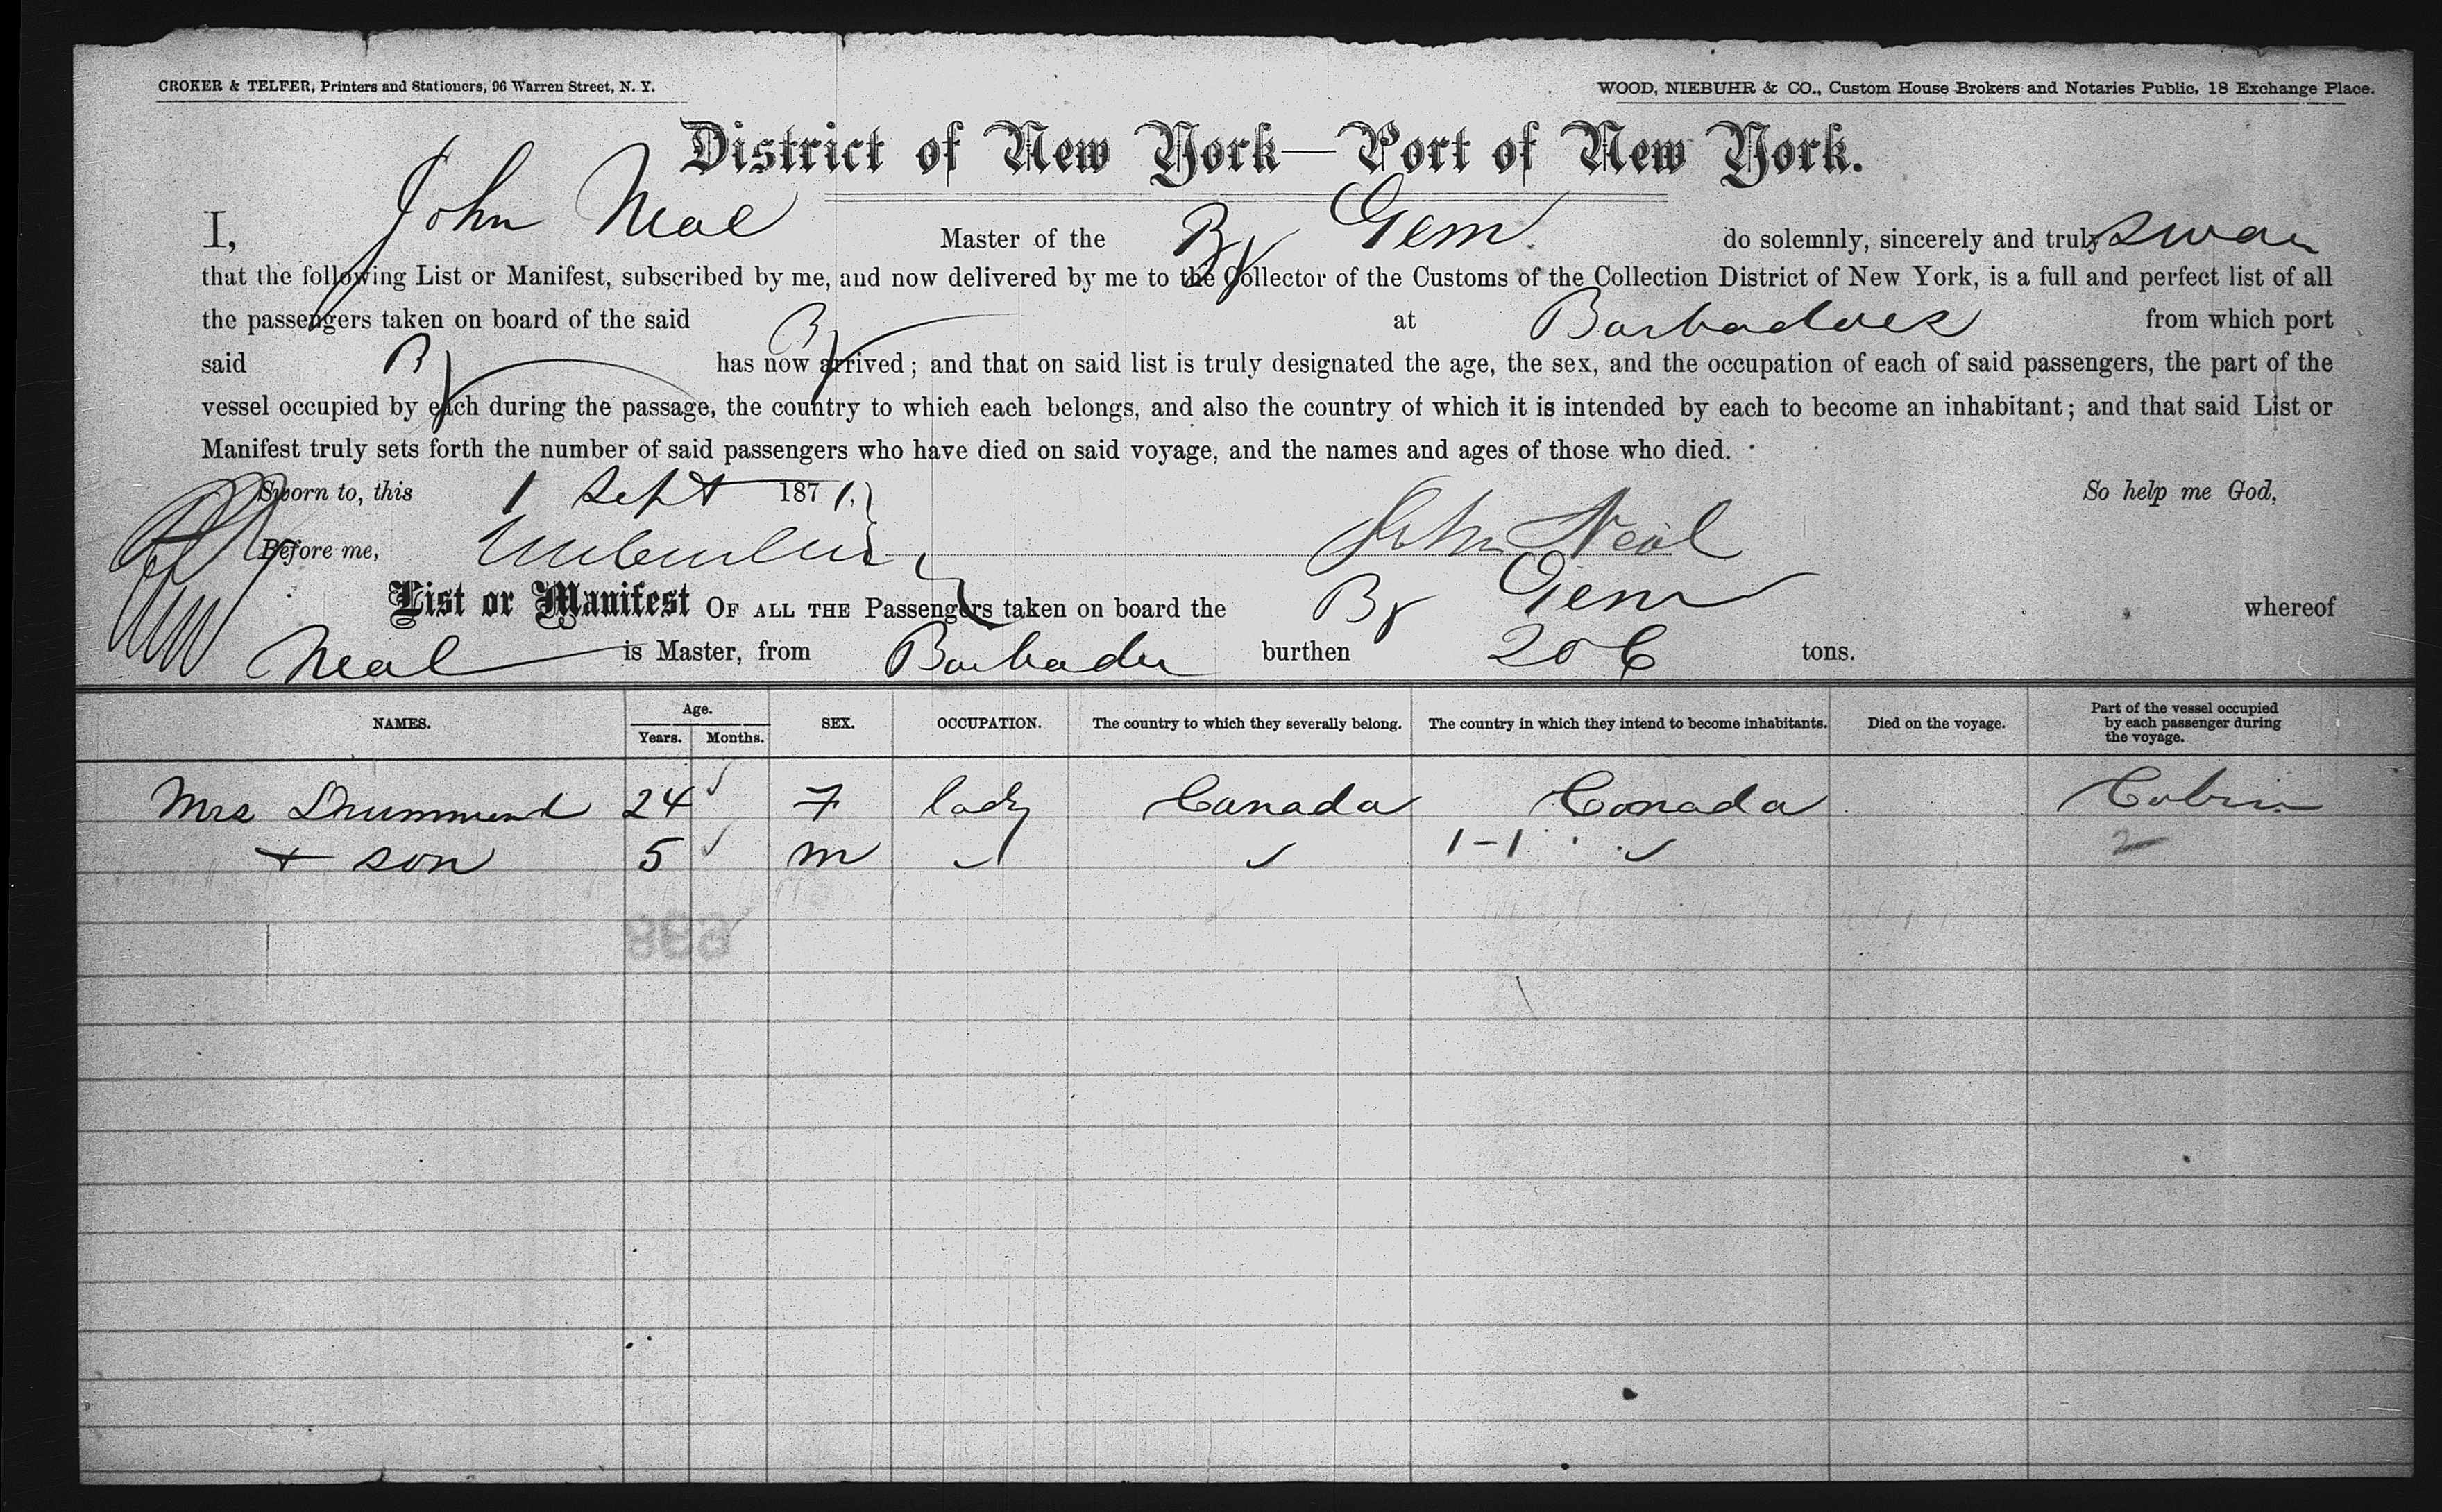 CROKER & TELFER, Printers and Stationers, 96 Warren Street, N. Y.
WOOD, NIEBUHR & CO., Custom House Brokers and Notaries Public, 18 Exchange Place.
District of New York—Port of New York.
I, John Neal Master of the Bg Gem. do solemnly, sincerely and truly
that the following List or Manifest, subscribed by me, and now delivered by me to the Collector of the Customs of the Collection District of New York, is a full and perfect list of all
the passengers taken on board of the said Bg at Barbadoes from which port
said Bg has now arrived; and that on said list is truly designated the age, the sex, and the occupation of each of said passengers, the part of the
vessel occupied by each during the passage, the country to which each belongs, and also the country of which it is intended by each to become an inhabitant; and that said List or
Manifest truly sets forth the number of said passengers who have died on said voyage, and the names and ages of those who died.
Sworn to, this 1 Sept 1871. So help me God,
Before me, John Neal
List or Manifest OF ALL THE Passengers taken on board the Bg Gem whereof
Neal is Master, from burthen 206 tons.
NAMES. Age. Years. Months. SEX. OCCUPATION. The country to which they severally belong. The country in which they intend to become inhabitants. Died on the voyage. Part of the vessel occupied by each passenger during the voyage.
Mrs Drummond 24 F lady Canada Canada Cabin
+ son 5 m 1-1 2